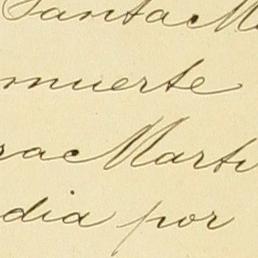 Santa M
muerte
rac Marti
dia por